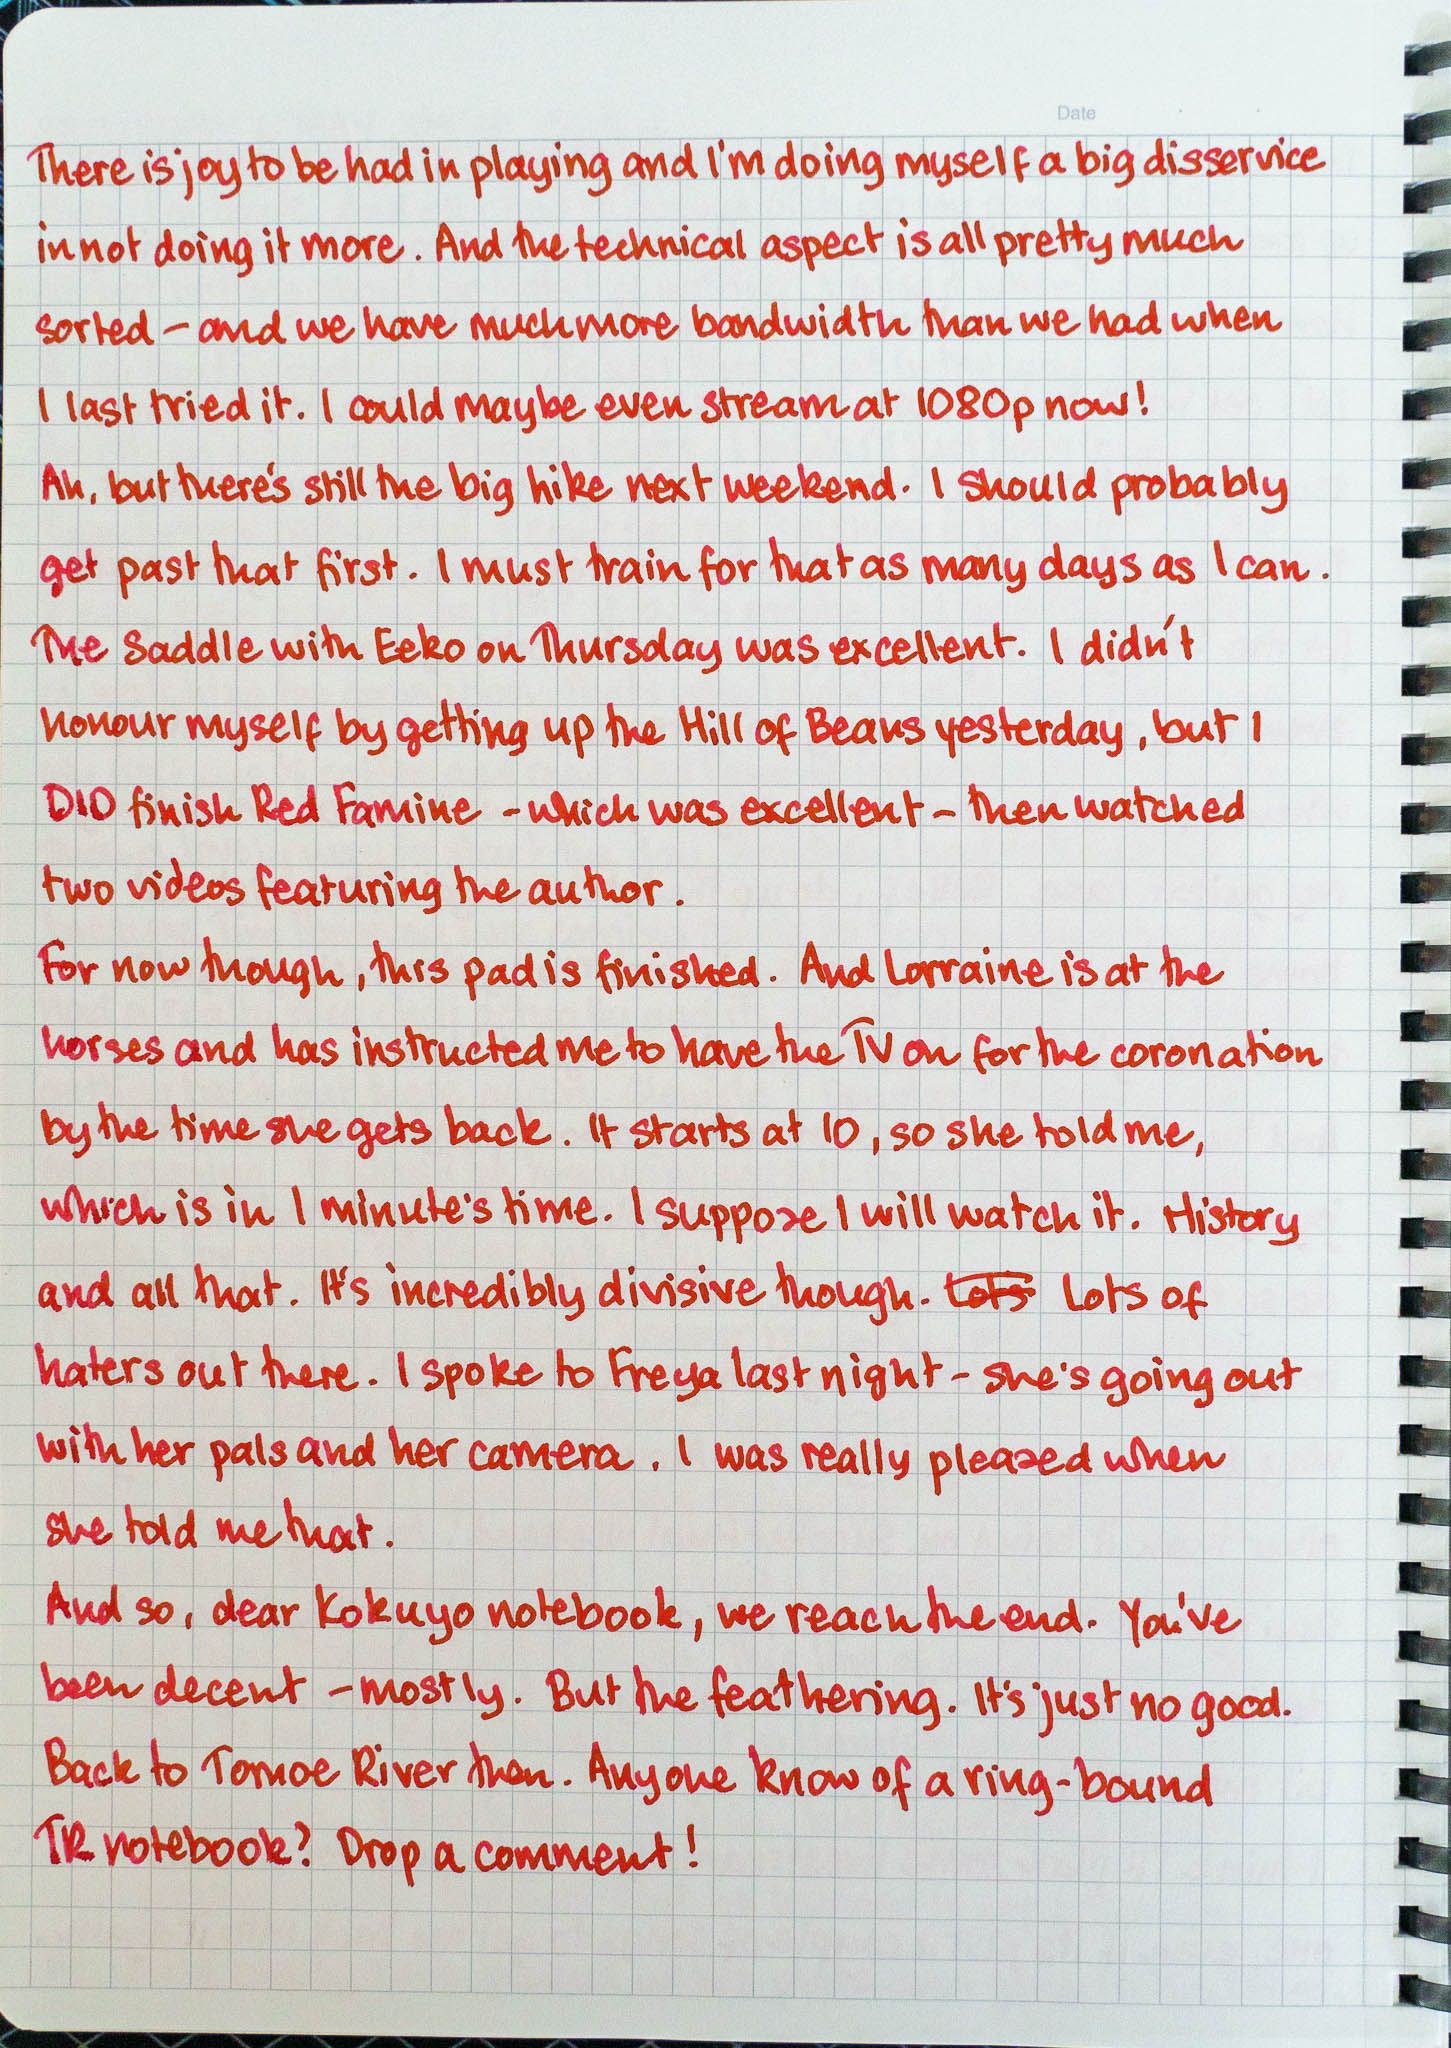 Date
There is joy to be had in playing and I'm doing myself a big disservice
in not doing it more. And the technical aspect is all pretty much
sorted – and we have much more bandwidth than we had when
I last tried it. I could maybe even stream at 1080p now!
Ah, but there's still the big hike next weekend. I should probably
get past that first. I must train for that as many days as I can.
The Saddle with Eeko on Thursday was excellent. I didn't
honour myself by getting up the Hill of Beans yesterday, but I
DID finish Red Famine – which was excellent – then watched
two videos featuring the author.
For now though, this pad is finished. And Lorraine is at the
horses and has instructed me to have the TV on for the coronation
by the time she gets back. It starts at 10, so she told me,
which is in 1 minute's time. I suppose I will watch it. History
and all that. It's incredibly divisive though. Lots Lots of
haters out there. I spoke to Freya last night – she's going out
with her pals and her camera. I was really pleased when
she told me that.
And so, dear Kokuyo notebook, we reach the end. You've
been decent – mostly. But the feathering. It's just no good.
Back to Tomoe River then. Anyone know of a ring-bound
TR notebook? Drop a comment!